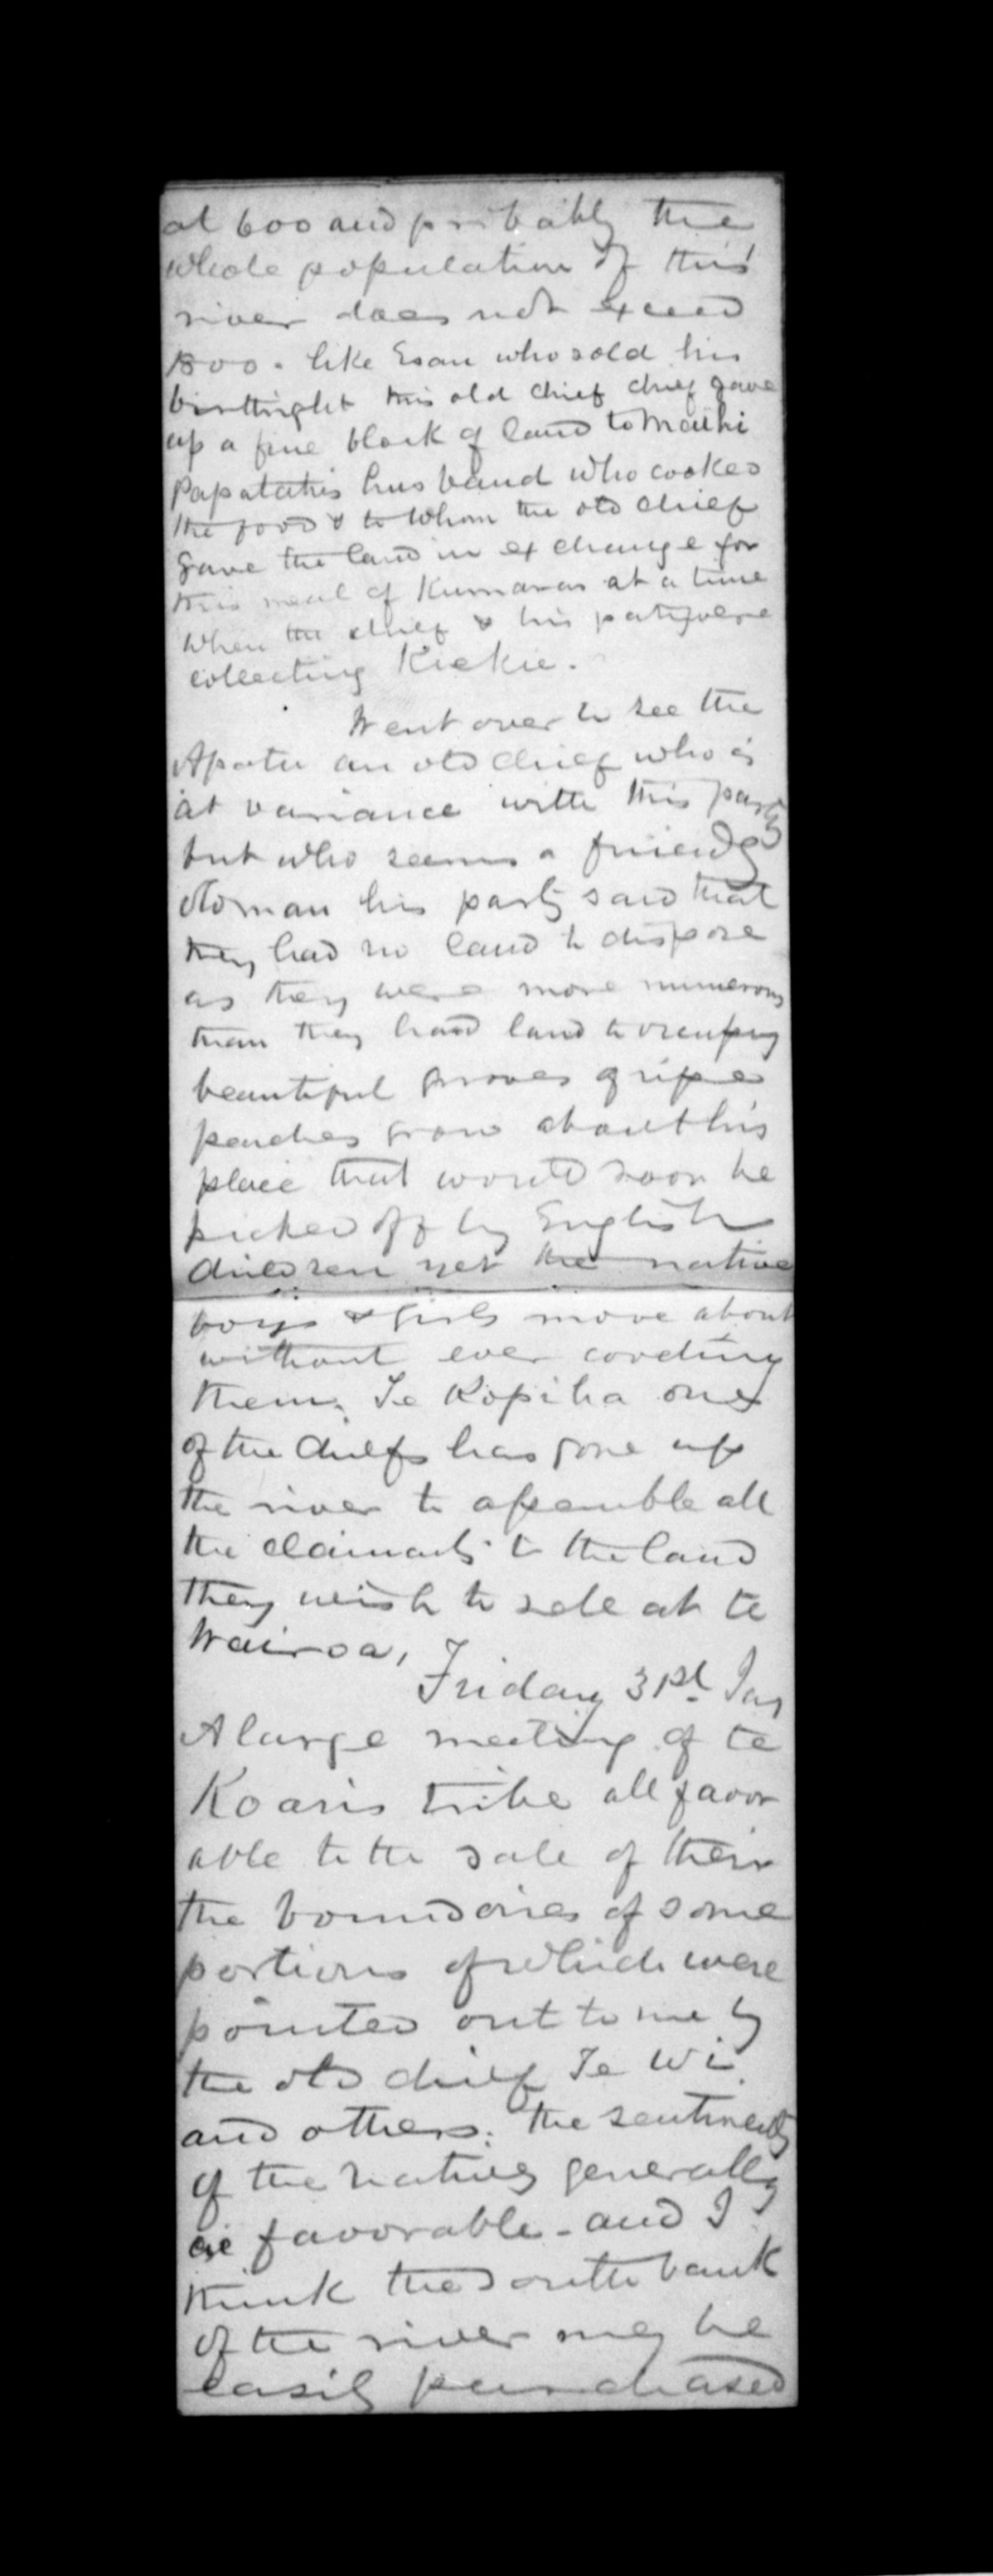 at 600 and probably the
whole population of this
river does not exceed
1800. like Esau who sold his
birthright this old chief chief gave
up a fine block of land to Maihi
Papatatis husband who cooked
the food & to whom the old chief
gave the land in exchange for
this meal of Kumaras at a time
when the chief & his party were
collecting Kiekie.
Went over to see the
Apatu an old chief who is
at variance with this party
but who seems a friendly
old man his party said that
they had no land to dispose
as they were more numerous
than they had land to occupy
beautiful groves of ripe
peaches grow about this
place that would soon be
picked off by English
children yet the native
boys & girls move about
without ever coveting
them. Te Kopiha one
of the chiefs has gone up
the river to assemble all
the claimants to the land
they wish to sell at te
Wairoa,
Friday 31st Jany
A large meeting of te
Koaris tribe all favor
able to the sale of their
the boundaries of some
portions of which were
pointed out to me by
the old chief Te Wi
and others. the sentiments
of the natives generally
are favorable - and I
think the south bank
of the river may be
easily purchased